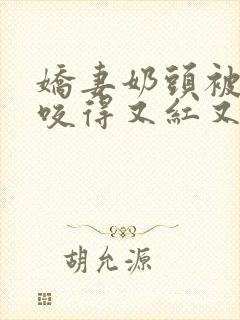 嬌妻奶頭被
咬得又紅又
胡允源